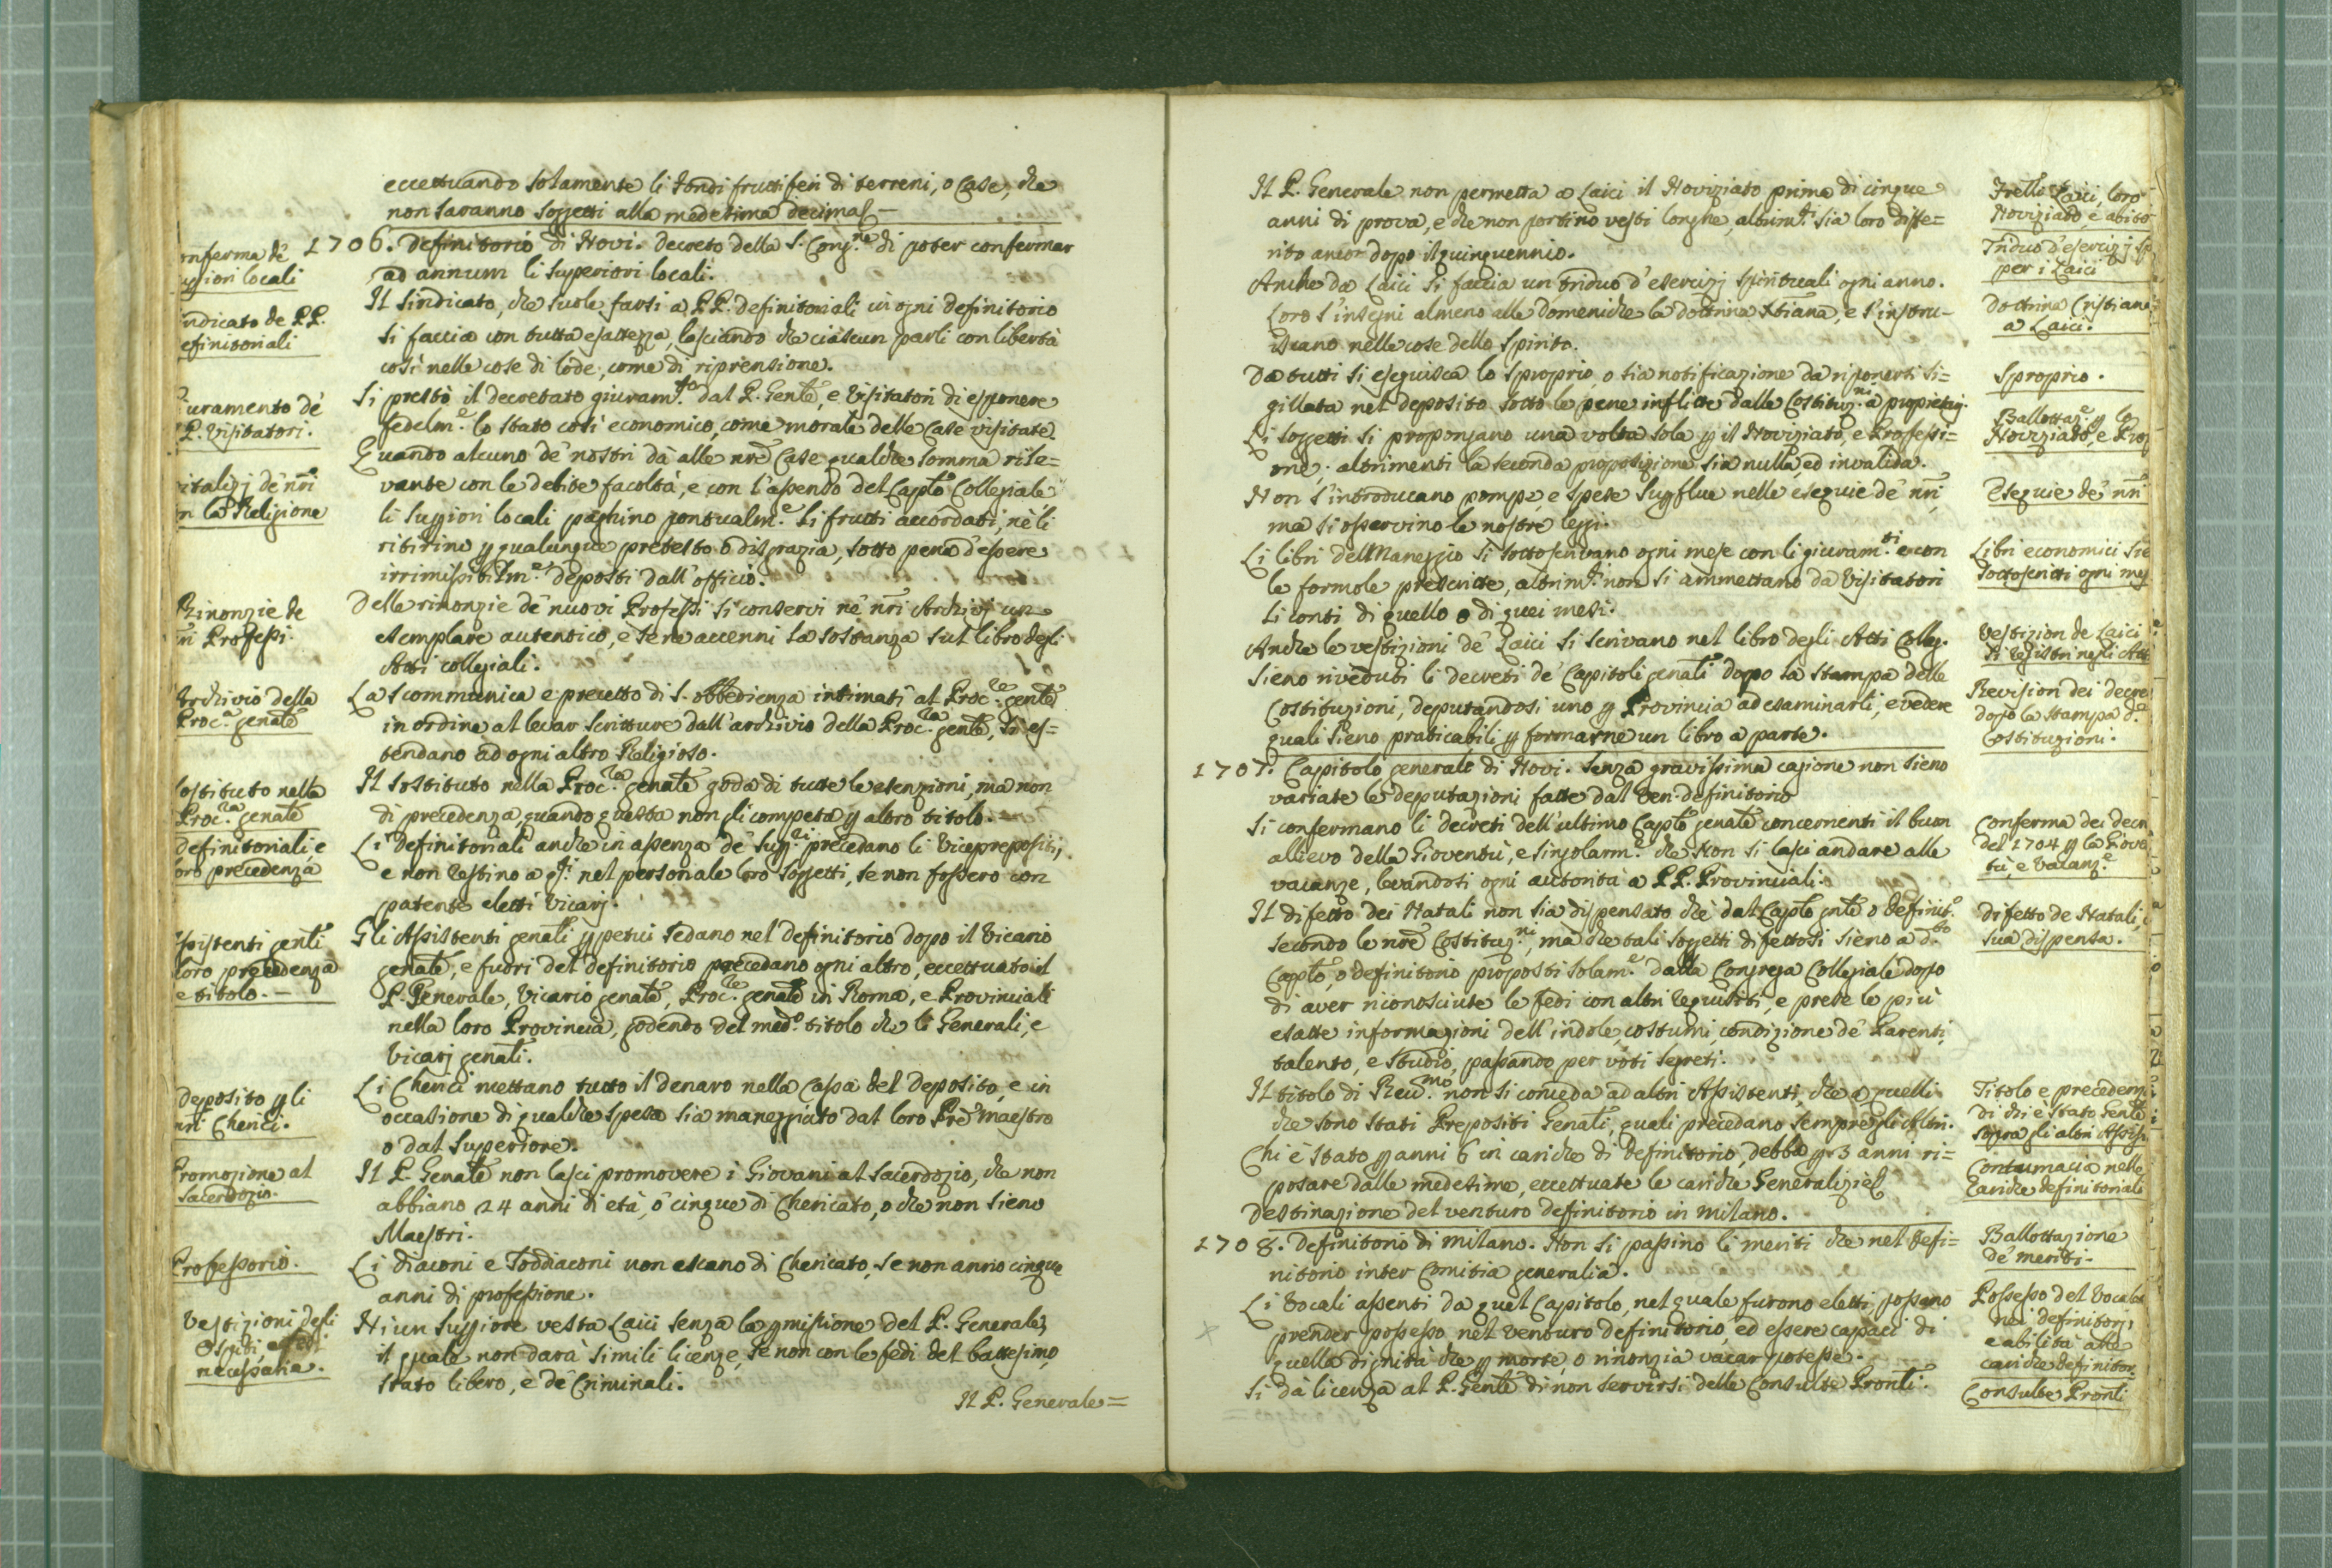 eccettuando solamente li Fondi fruttiferi di terreni, o Case, che
non saranno soggetti alla medesima decima.
onferma de'
ugiori locali
1706. Definitorio di Novi. Decreto della S. Cong.ne di poter confermar
ad annum li Superiori locali.
indicato de PP.
efinitoriali
Il sindicato, che suole farsi a PP. Definitoriali in ogni definitorio
si faccia con tutta esattezza, lasciando che ciascun parli con libertà
così nelle cose di lode, come di riprensione.
uramento de'
P. Visitatori.
Si prestò il decretato giuram.to dal P. Genle, e Visitatori di esponere
fedelm.e lo stato così economico, come morale delle Case visitate.
italizj de' nri
n la Religione
Quando alcuno de' nostri dà alle nre Case qualche somma rile=
vante con le debite facoltà, e con l'assenso del Caplo Collegiale
li Supiori locali paghino pontualm.e li frutti accordati, nè li
ritirino p qualunque pretesto o disgrazia, sotto pena d'essere
irrimissibilm.e deposti dall'officio.
Rinonzie de
nri Professi.
Delle rinonzie de' nuovi Professi si conservi ne' nri Archivj un
esemplare autentico, e se ne accenni la sostanza sul libro degli
Atti collegiali.
Archivio della
Proc.a genale
La scommunica e precetto di S. obbedienza intimati al Proc.re genle
in ordine al levar scritture dall'archivio della Proc.ra genle, si es=
tendano ad ogni altro Religioso.
Sostituto nella
Proc.ra genale
Il sostituto nella Proc.ra genale goda di tutte le esenzioni, ma non
di precedenza, quando questa non gli competa p altro titolo.
Definitoriali e
loro precedenza
Li Definitoriali anche in assenza de' Sup.ri precedano li Viceprepositi,
e non restino a q.ti nel personale loro soggetti, se non fossero con
patente eletti Vicarj.
Assistenti genli
loro precedenza
e titolo.
Gli Assistenti genali ppetui sedano nel definitorio dopo il Vicario
genale, e fuori del definitorio precedano ogni altro, eccettuato il
P. Generale, Vicario genale, Proc.re genale in Roma, e Provinciali
nella loro Provincia, godendo del med.o titolo che li Generali, e
Vicarj genali.
Deposito p li
nri Cherici.
Li Cherici mettano tutto il denaro nella Cassa del deposito, e in
occasione di qualche spesa sia maneggiato dal loro Pre Maestro
o dal Superiore.
Promozione al
Sacerdozio.
Il P. Genale non lasci promovere i Giovani al Sacerdozio, che non
abbiano 24 anni di età, o cinque di Chericato, o che non sieno
Maestri.
Professorio.
Li Diaconi e Soddiaconi non escano di Chericato, se non anno cinque
anni di professione.
Vestizioni degli
Ospiti,
necessaria.
Niun Supiore vesta Laici senza la pmissione del P. Generale,
il quale non darà simili licenze, se non con le fedi del battesimo,
stato libero, e de' Criminali.
Il P. Generale=
Il P. Generale non permetta a Laici il Noviziato prima di cinque
anni di prova, e che non portino vesti longhe, altrim.ti sia loro diffe=
rito ancor dopo il quinquennio.
Frelli Laici, loro
Noviziato, e abito
Anche da Laici si faccia un triduo d'esercizj spirituali ogni anno.
Triduo d'esercizj sp
per i Laici
Loro s'insegni almeno alle Domeniche la dottrina Xtiana, e s'instru-
iscano nelle cose dello spirito.
Dottrina Cristiana
a Laici.
Da tutti si eseguisca lo sproprio, o sia notificazione da riponersi si=
gillata nel deposito sotto le pene inflitte dalle Costituz.ni a proprietarj.
Sproprio.
Li soggetti si propongano una volta sola p il Noviziato, e Professi=
one; altrimenti la seconda proposizione sia nulla, ed invalida.
Ballottaz.e p lo
Noviziato, e Prof
Non s'introducano pompe, e spese supflue nelle esequie de' nri,
ma si osservino le nostre leggi.
Esequie de' nri
Li libri dell Maneggio si sottoscrivano ogni mese con li giuram.ti e con
le formole prescritte, altrim.ti non si ammettano da Visitatori
li conti di quello o di quei mesi.
Libri economici sie
sottoscritti ogni mes
Anche le vestizioni de' Laici si scrivano nel libro degli Atti Colleg.
Vestizion de Laici
si registri negli Atti
Sieno riveduti li decreti de' Capitoli genali dopo la stampa delle
Costituzioni, deputandosi uno p Provincia ad esaminarli, e vedere
quali sieno praticabili p formarne un libro a parte.
Revision dei decre
dopo la stampa d.e
Costituzioni.
1707. Capitolo generale di Novi. Senza gravissima cagione non sieno
variate le deputazioni fatte dal Ven. definitorio
Si confermano li decreti dell'ultimo Caplo genale concernenti il buon
allievo della Gioventù, e singolarm.e che non si lasci andare alle
vacanze, levandosi ogni autorità a PP. Provinciali.
Conferma dei decr
del 1704 p la Giove
tù, e Vacanz.e
Il difetto dei Natali non sia dispensato che dal Caplo gnle o Definit.o
secondo le nre Costituz.ni, ma che tali soggetti difettosi sieno a d.to
Caplo, o definitorio proposti solam.e dalla Congrega Collegiale dopo
di aver riconosciute le fedi con altri requisiti, e prese le più
esatte informazioni dell'indole, costumi, condizione de' Parenti,
talento, e studio, passando per voti segreti.
Difetto de Natali, e
sua dispensa.
Il titolo di Reu.mo non si conceda ad altri Assistenti, che a quelli
che sono stati Prepositi Genali, quali precedano sempre gli Altri.
Titolo e precedenz
di chi è stato Genle
sopra gli altri Assis.
Chi è stato p anni 6 in cariche di Definitorio, debba p 3 anni ri=
posare dalle medesime, eccettuate le cariche Generalizie
Contumacia nelle
Cariche definitoriali
Destinazione del venturo definitorio in Milano.
1708. Definitorio di Milano. Non si passino li meriti che nel Defi=
nitorio inter Comitia generalia.
Ballottazione
de' meriti.
Li Vocali assenti da quel Capitolo, nel quale furono eletti, possano
prender possesso nel venturo definitorio, ed essere capaci di
quella dignità che p morte, o rinonzia vacar potesse.
Possesso del Vocale
nei definitorj
e abilità alle
cariche definitor.
Si dà licenza al P. Genle di non servirsi delle Consulte Pronli.
Consulte Pronli